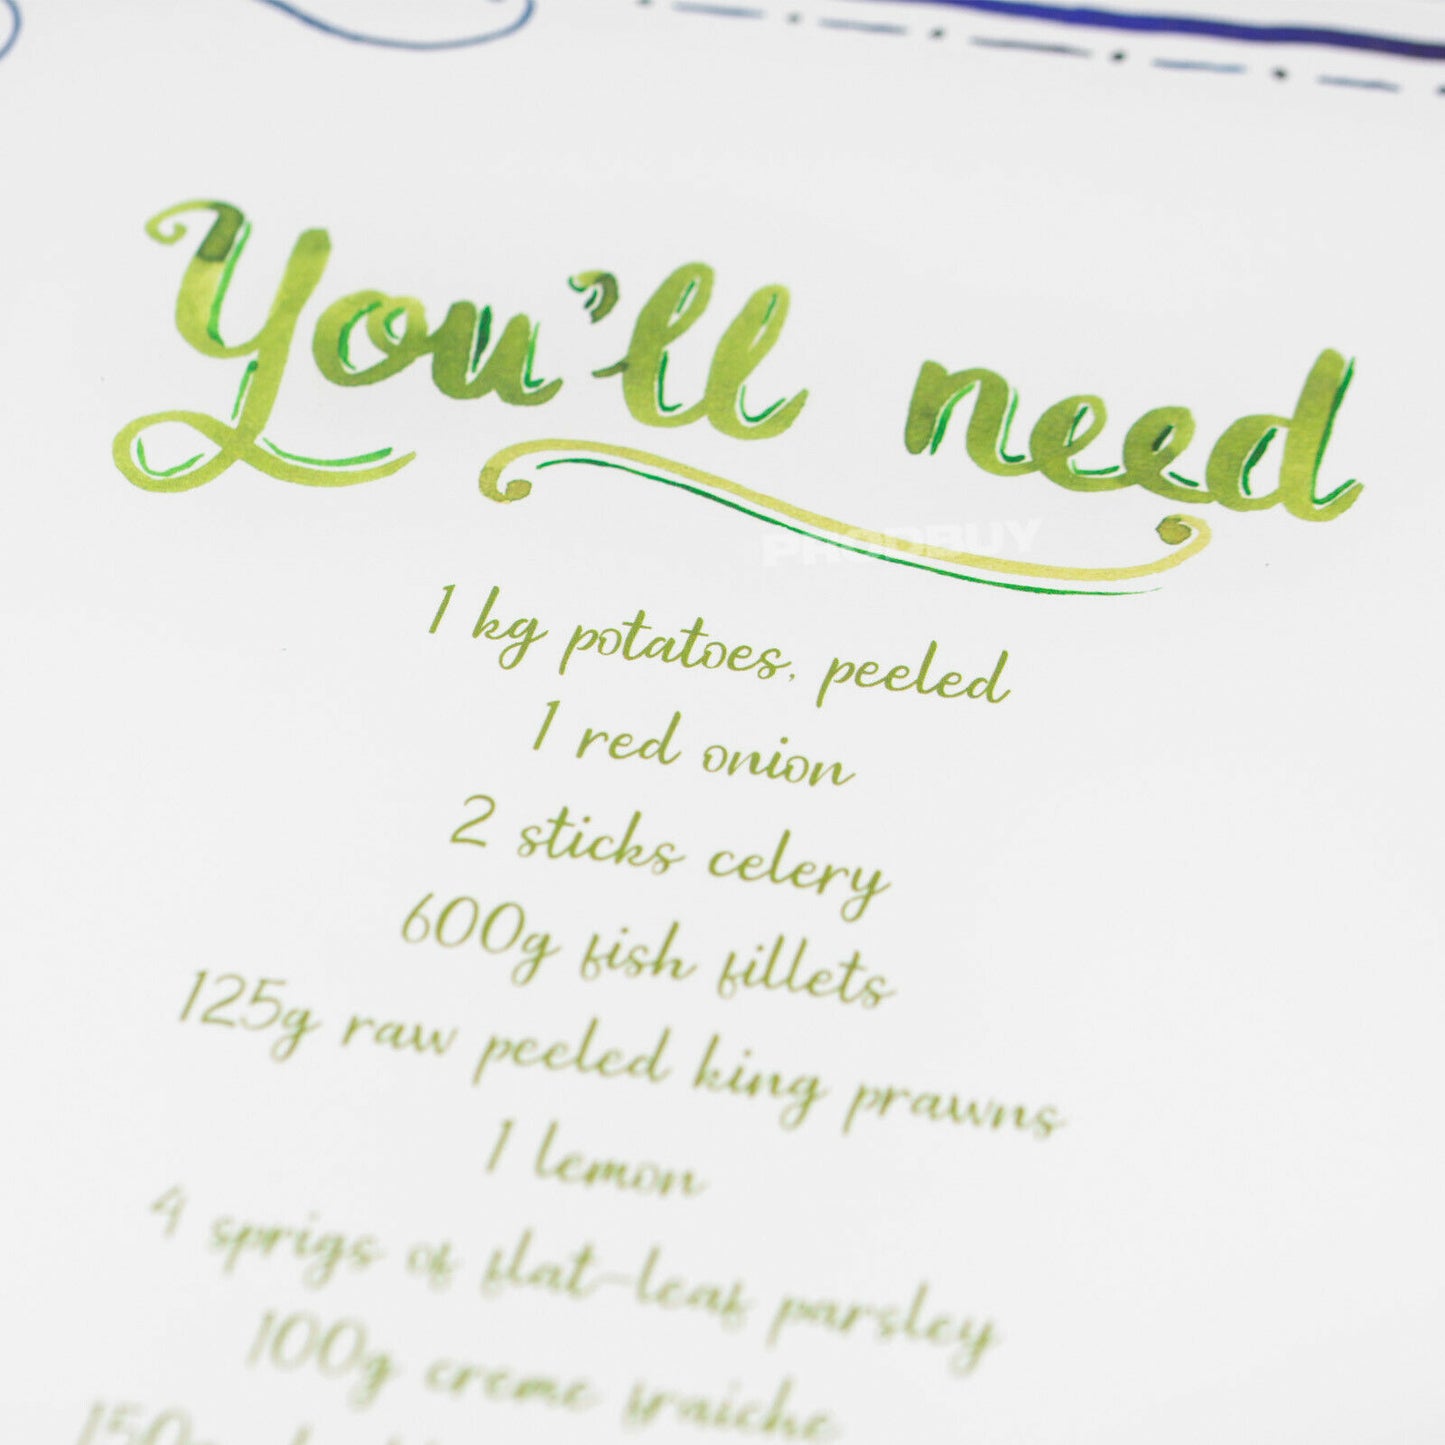 You'll need
PRODBUY
1 kg potatoes, peeled
1 red onion
2 sticks celery
600g fish fillets
125g raw peeled king prawns
1 lemon
4 sprigs of flat-leaf parsley
100g creme fraiche
150g